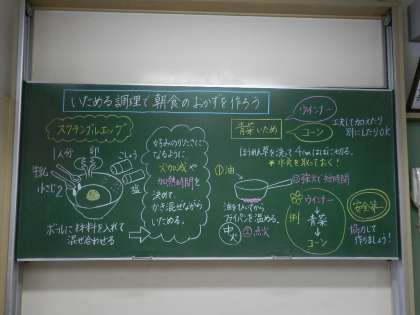 いためる調理で朝食のおかずを作ろう
スクランブルエッグ
1人分
卵
こしょう
牛乳
小さじ2
塩
ボールに材料を入れて
混ぜ合わせる
好みのかたさに
なるように
火加減や
加熱時間を
決めて
かき混ぜながら
いためる。
青菜いため
ウインナー
コーン
工夫して加えたり
別にしたりOK
ほうれん草を洗って4cmはばに切る。
*水気を取っておく!
①油
油をひいてから
フライパンを温める。
中火
②点火
③強火で短時間
例
ウインナー
↓
青菜
↓
コーン
安全第一
協力して
作りましょう!